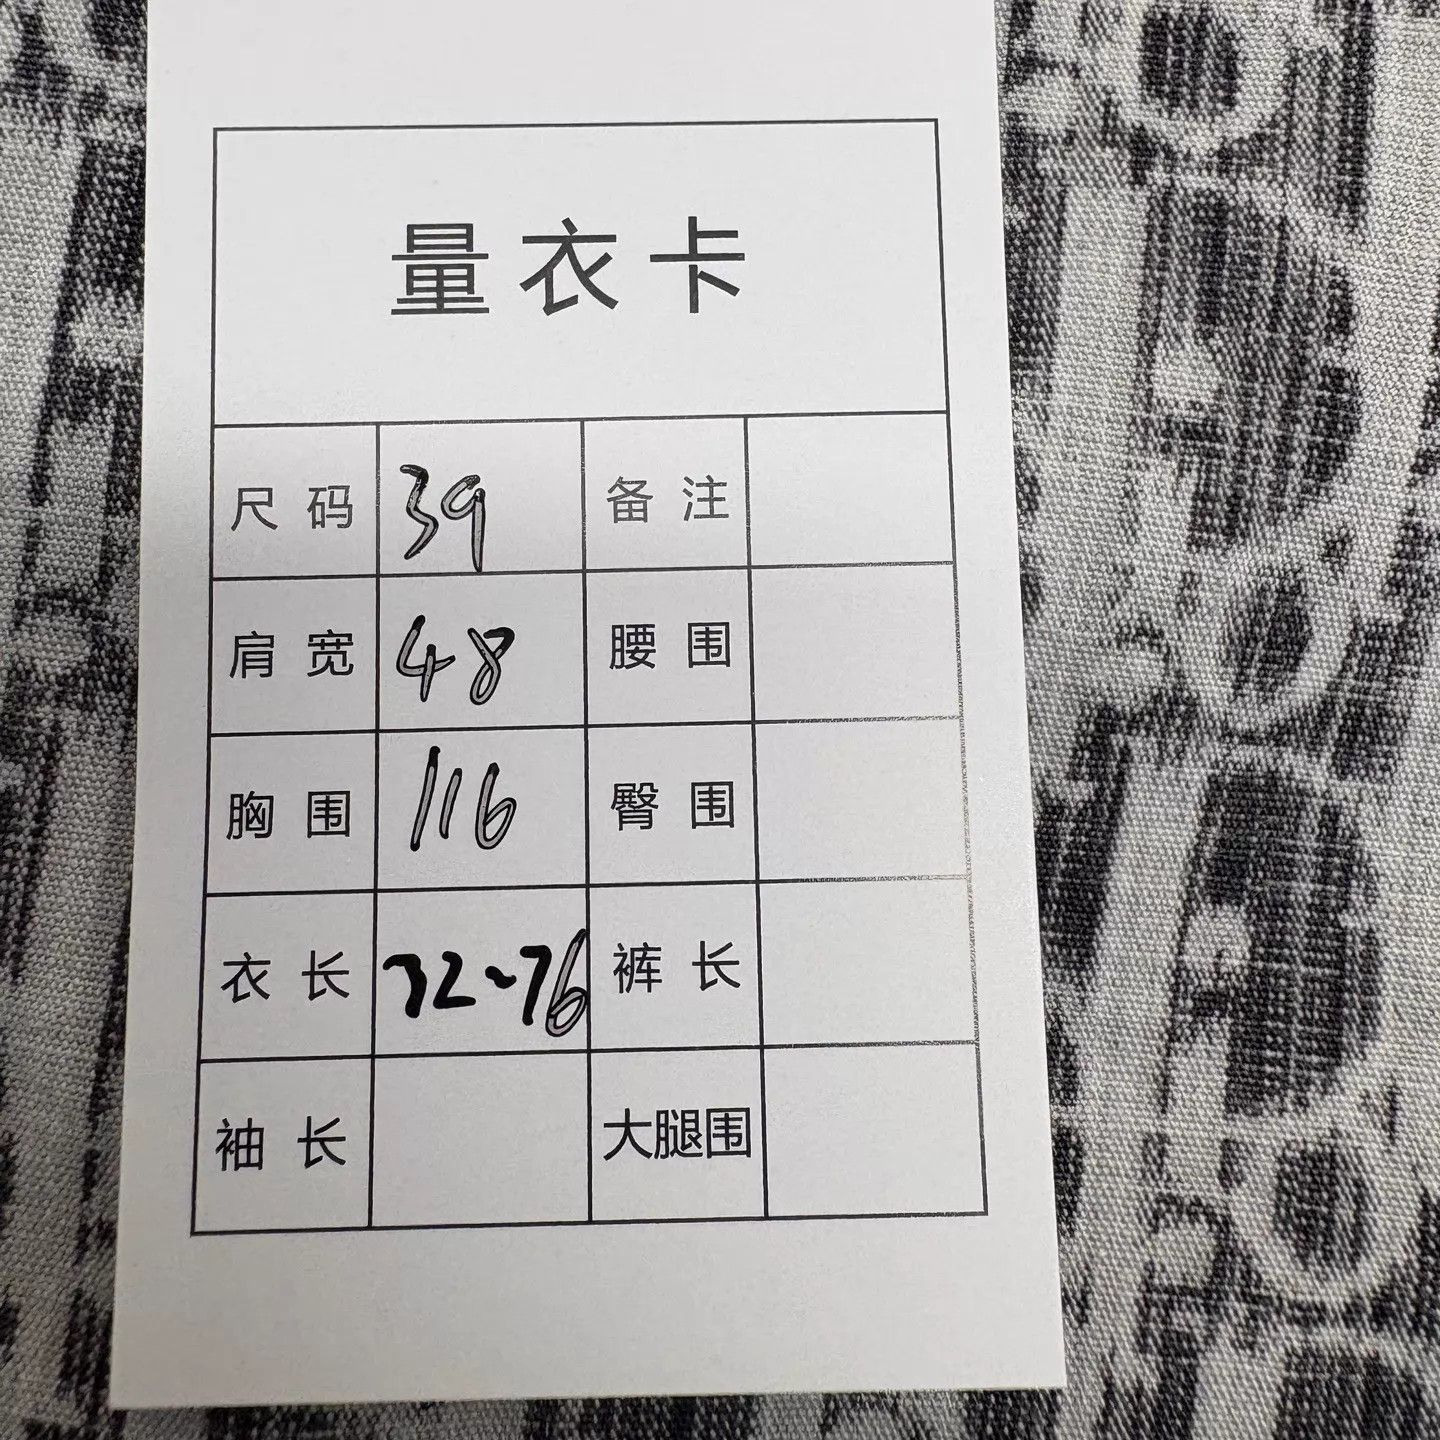 量衣卡
尺码 39 备注
肩宽 48 腰围
胸围 116 臀围
衣长 72~76 裤长
袖长 大腿围